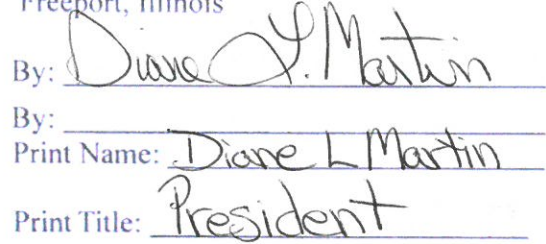 Freeport, Illinois
By: Diane L. Martin
By:
Print Name: Diane L Martin
Print Title: President